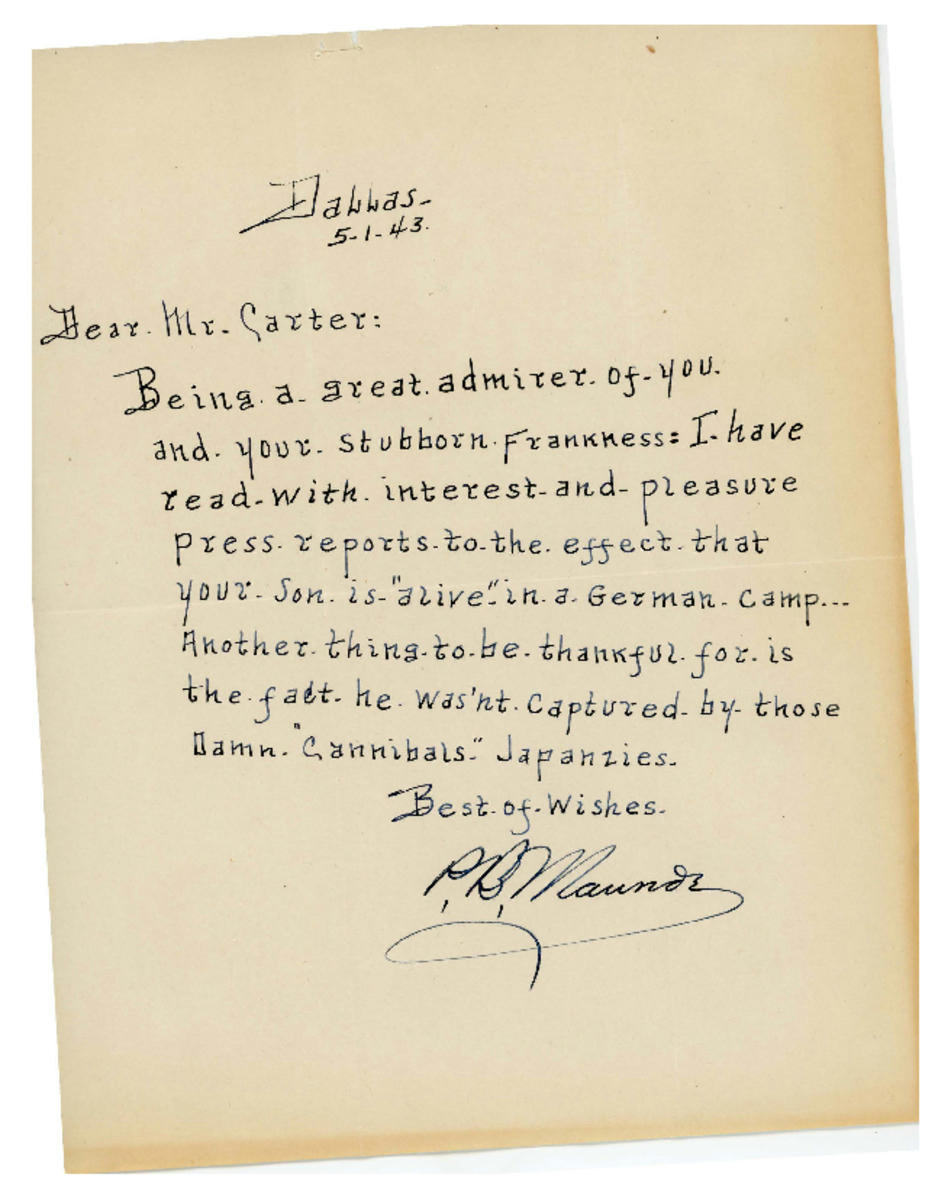 Dallas-
5-1-43.
Dear. Mr. Carter:
Being. a. great. admirer. of. you.
and. your. Stubborn. Frankness: I. have
read. with. interest. and. pleasure
press. reports. to. the. effect. that
your. Son. is. "alive". in. a. German. Camp...
Another. thing. to. be. thankful. for. is
the. fact. he. was'nt. Captured. by. those
Damn. "Cannibals." Japanzies.
Best. of. Wishes.
P. B. Maund